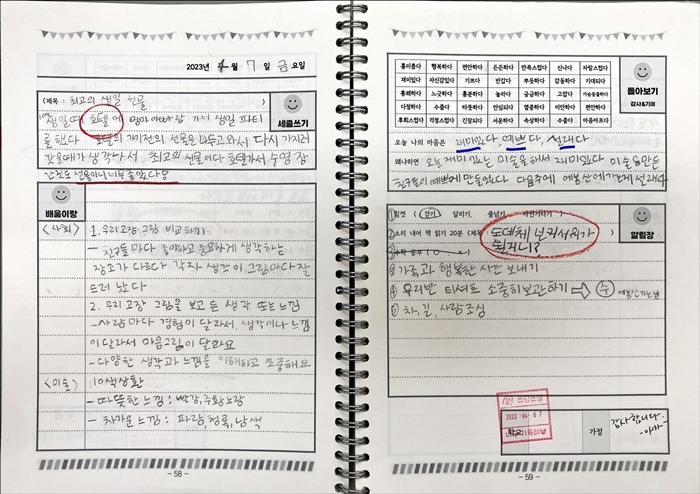 2023년 4월 7일 금요일
(제목 : 최고의 생일 선물
세줄쓰기
생일때 호텔에 엄마 아빠랑 가서 생일 파티
를 했다
선물을
다시 가지러
최고의 선물이다 호텔가서 수영장
선물이니 너무 좋았다!
배움이랑
<사회>
1. 우리 고장 그림 비교하기
- 친구들마다 좋아하고 중요하게 생각하는
장소가 다르다 각자 생각이 그림마다 잘
드러났다
2. 우리 고장 그림을 보고 든 생각 또는 느낌
- 사람마다 경험이 달라서, 생각이나 느낌
이 달라서 마음그림이 달라요
- 다양한 생각과 느낌을 이해하고 존중해요
<미술>
10색상환
- 따뜻한 느낌 : 빨강, 주황, 노랑
- 차가운 느낌 : 파랑, 청록, 남색
- 58 -
흥미롭다 행복하다 편안하다 든든하다 만족스럽다 신나다 자랑스럽다
재미있다 자신감있다 기쁘다 반갑다 뿌듯하다 감동하다 기대되다
통쾌하다 느긋하다 흥분하다 놀라다 궁금하다 고맙다
다정하다 수줍다 따뜻하다 안심되다 열중하다 미안하다 편안하다
후회스럽다 걱정스럽다 긴장되다 서운하다 속상하다 수줍다 마음아프다
돌아보기
감사&기여
오늘 나의 마음은 재미있다, 예쁘다, 설레다
왜냐하면 오늘 재미있는 미술을 해서 재미있다
친구들이 예쁘게 만들었다 다음주에 설레다
알림장
① 힘껏 (걷기 달리기, 줄넘기, 자전거타기)
② 소리 내어 책 읽기 20분 (제목 도데체 넌 커서 뭐가
될거니?
③ 수학 공부 10
③ 가족과 행복한 시간 보내기
④ 우리반 티셔츠 소중히 보관하기 ⇒ 수
⑤ 차, 길, 사람조심
2023. 04. 07
학교
가정
감사합니다.
-아빠-
- 59 -